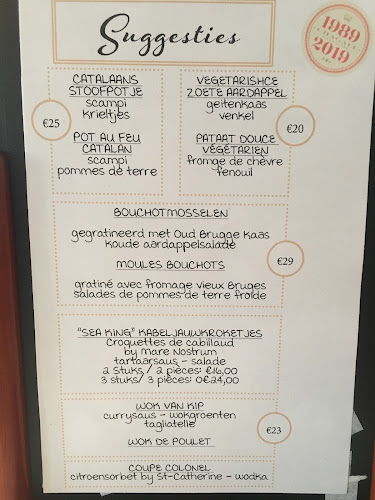 Suggesties
1989
2019
CATALAANS
STOOFPOTJE
scampi
krieltjes
€25
POT AU FEU
CATALAN
scampi
pommes de terre
VEGETARISHCE
ZOETE AARDAPPEL
geitenkaas
venkel
€20
PATAAT DOUCE
VÉGÉTARIEN
fromge de chèvre
fenouil
BOUCHOTMOSSELEN
gegratineerd met Oud Brugge Kaas
koude aardappelsalade
€29
MOULES BOUCHOTS
gratiné avec fromage vieux Bruges
salades de pommes de terre froide
"SEA KING" KABELJAUWKROKETJES
Croquettes de cabillaud
by Mare Nostrum
tartaarsaus - salade
2 stuks / 2 pièces: €16,00
3 stuks/ 3 pièces: 0€24,00
WOK VAN KIP
currysaus - wokgroenten
tagliatelle
€23
WOK DE POULET
COUPE COLONEL
citroensorbet by St-Catherine - wodka